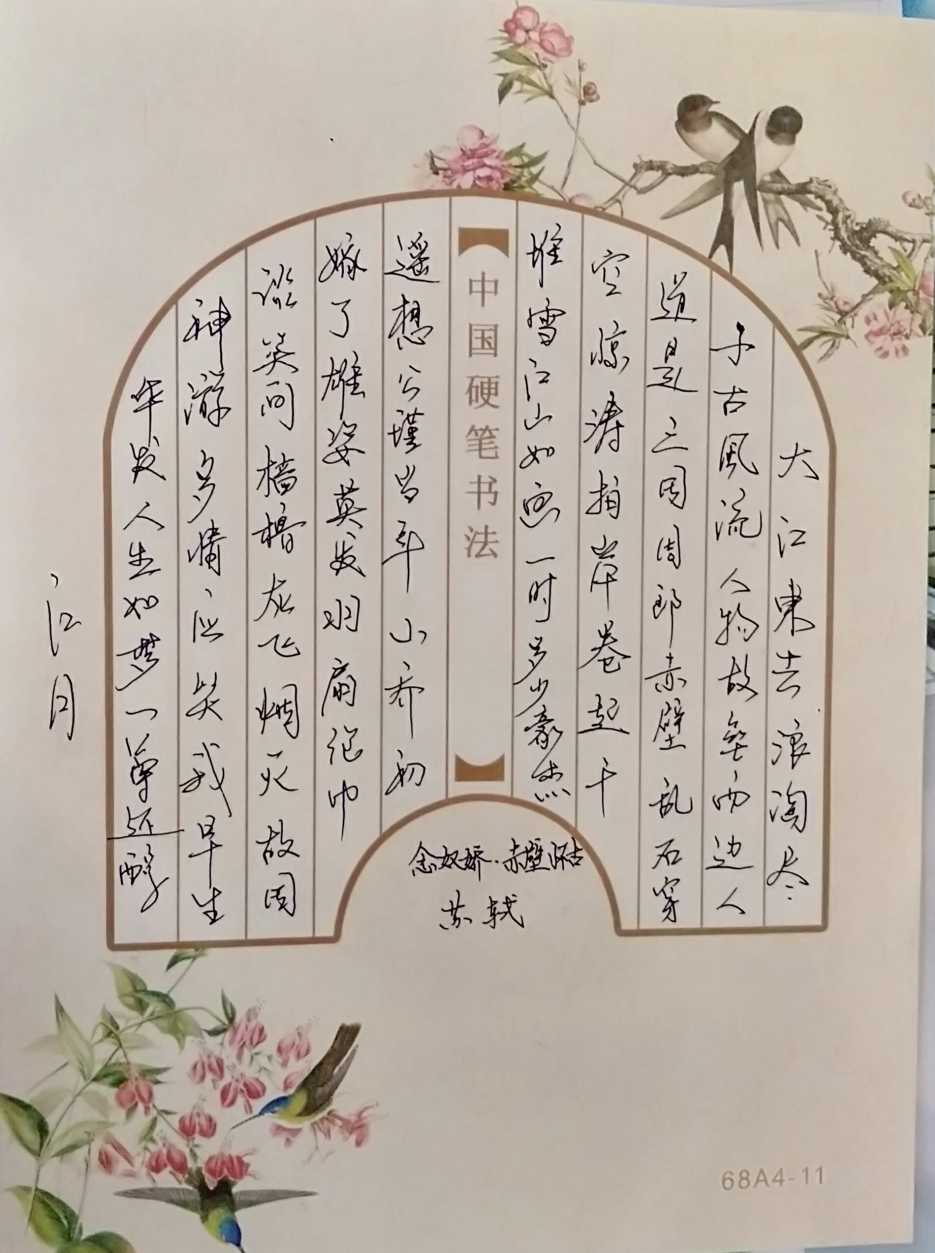 大江东去浪淘尽
千古风流人物故垒西边人
道是三国周郎赤壁乱石穿
空惊涛拍岸卷起千
堆雪江山如画一时多少豪杰
中国硬笔书法
遥想公瑾当年小乔初
嫁了雄姿英发羽扇纶巾
谈笑间樯橹灰飞烟灭故国
神游多情应笑我早生
华发人生如梦一尊还酹
江月
念奴娇·赤壁怀古
苏轼
68A4-11